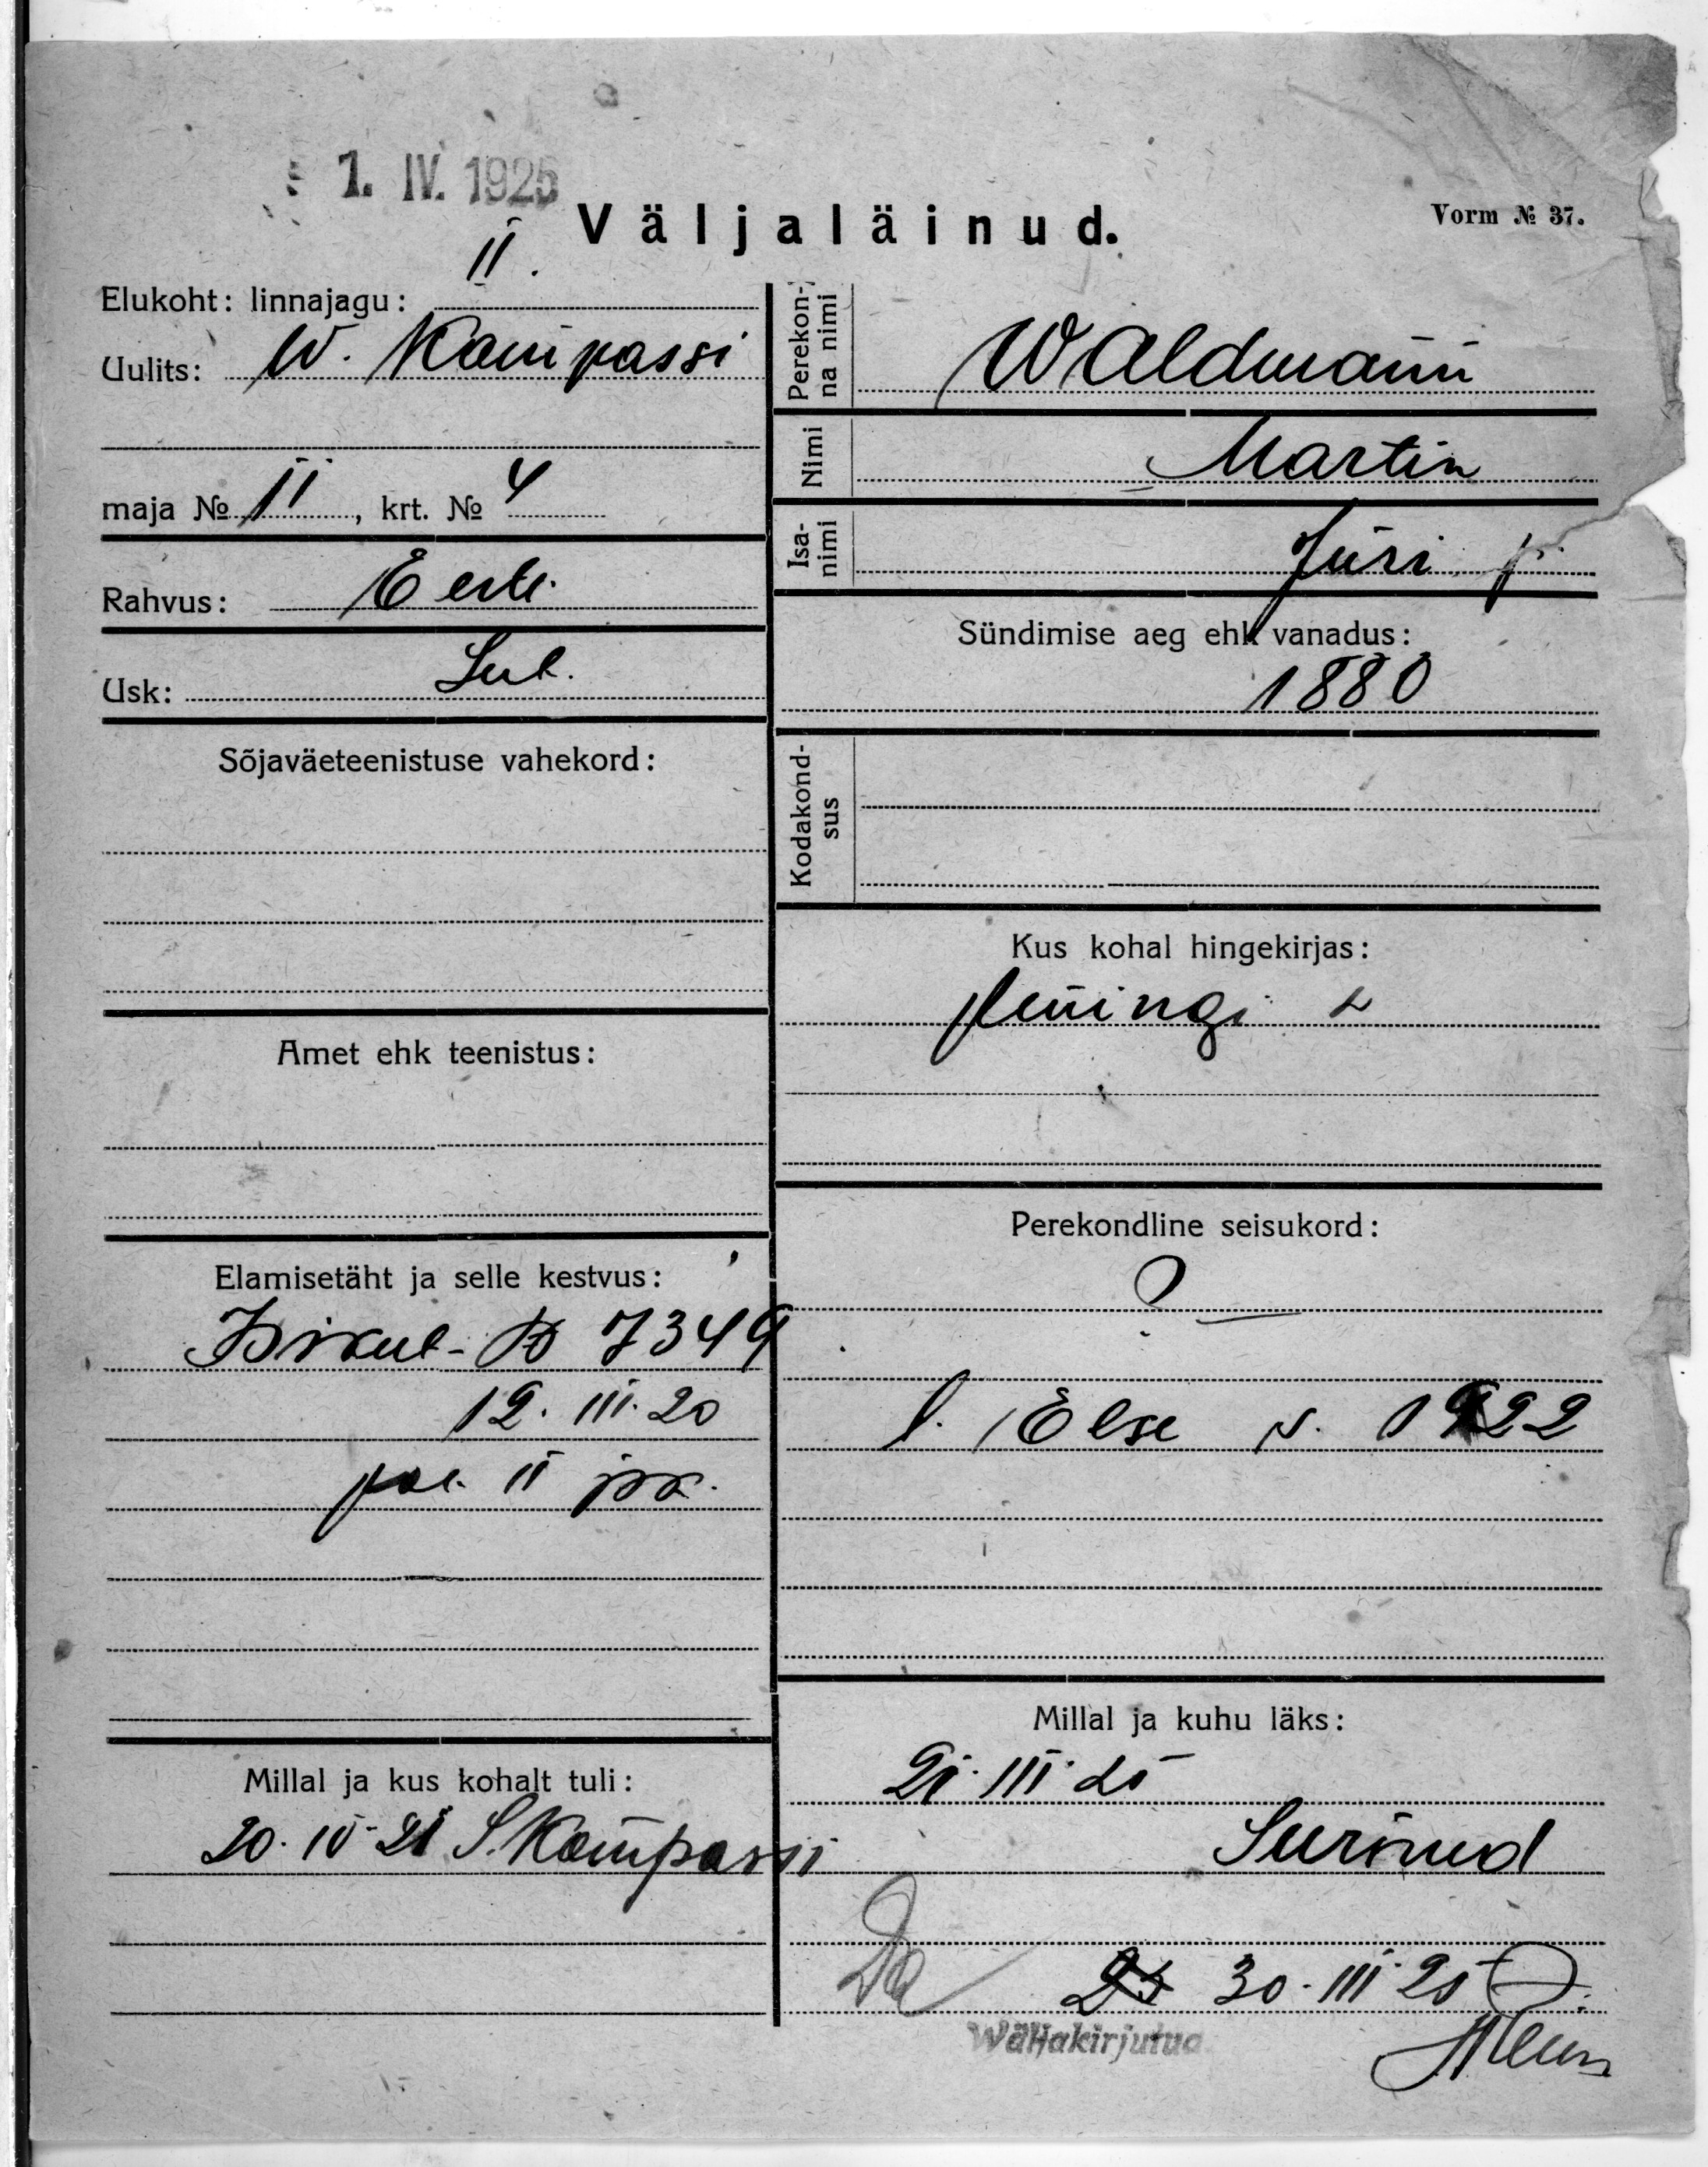 1. IV. 1925
Väljaläinud.
Vorm № 37.
Elukoht: linnajagu: II.
Uulits: W. Kompassi
maja № 11, krt. № 4
Rahvus: Eesti
Usk: Lut.
Sõjaväeteenistuse vahekord:
Amet ehk teenistus:
Elamisetäht ja selle kestvus:
№ 7349
12. III. 20
pol. II jsk.
Millal ja kus kohalt tuli:
20. IV 21 S. Kompassi
Perekon-
na nimi
Waldmann
Nimi
Martin
Isa-
nimi
Jüri p.
Sündimise aeg ehk vanadus:
1880
Kodakond-
sus
Kus kohal hingekirjas:
Perekondline seisukord:
?
l. Else s. 1922
Millal ja kuhu läks:
21. III. 25
Surnud
30. III 25
Wäljakirjutud